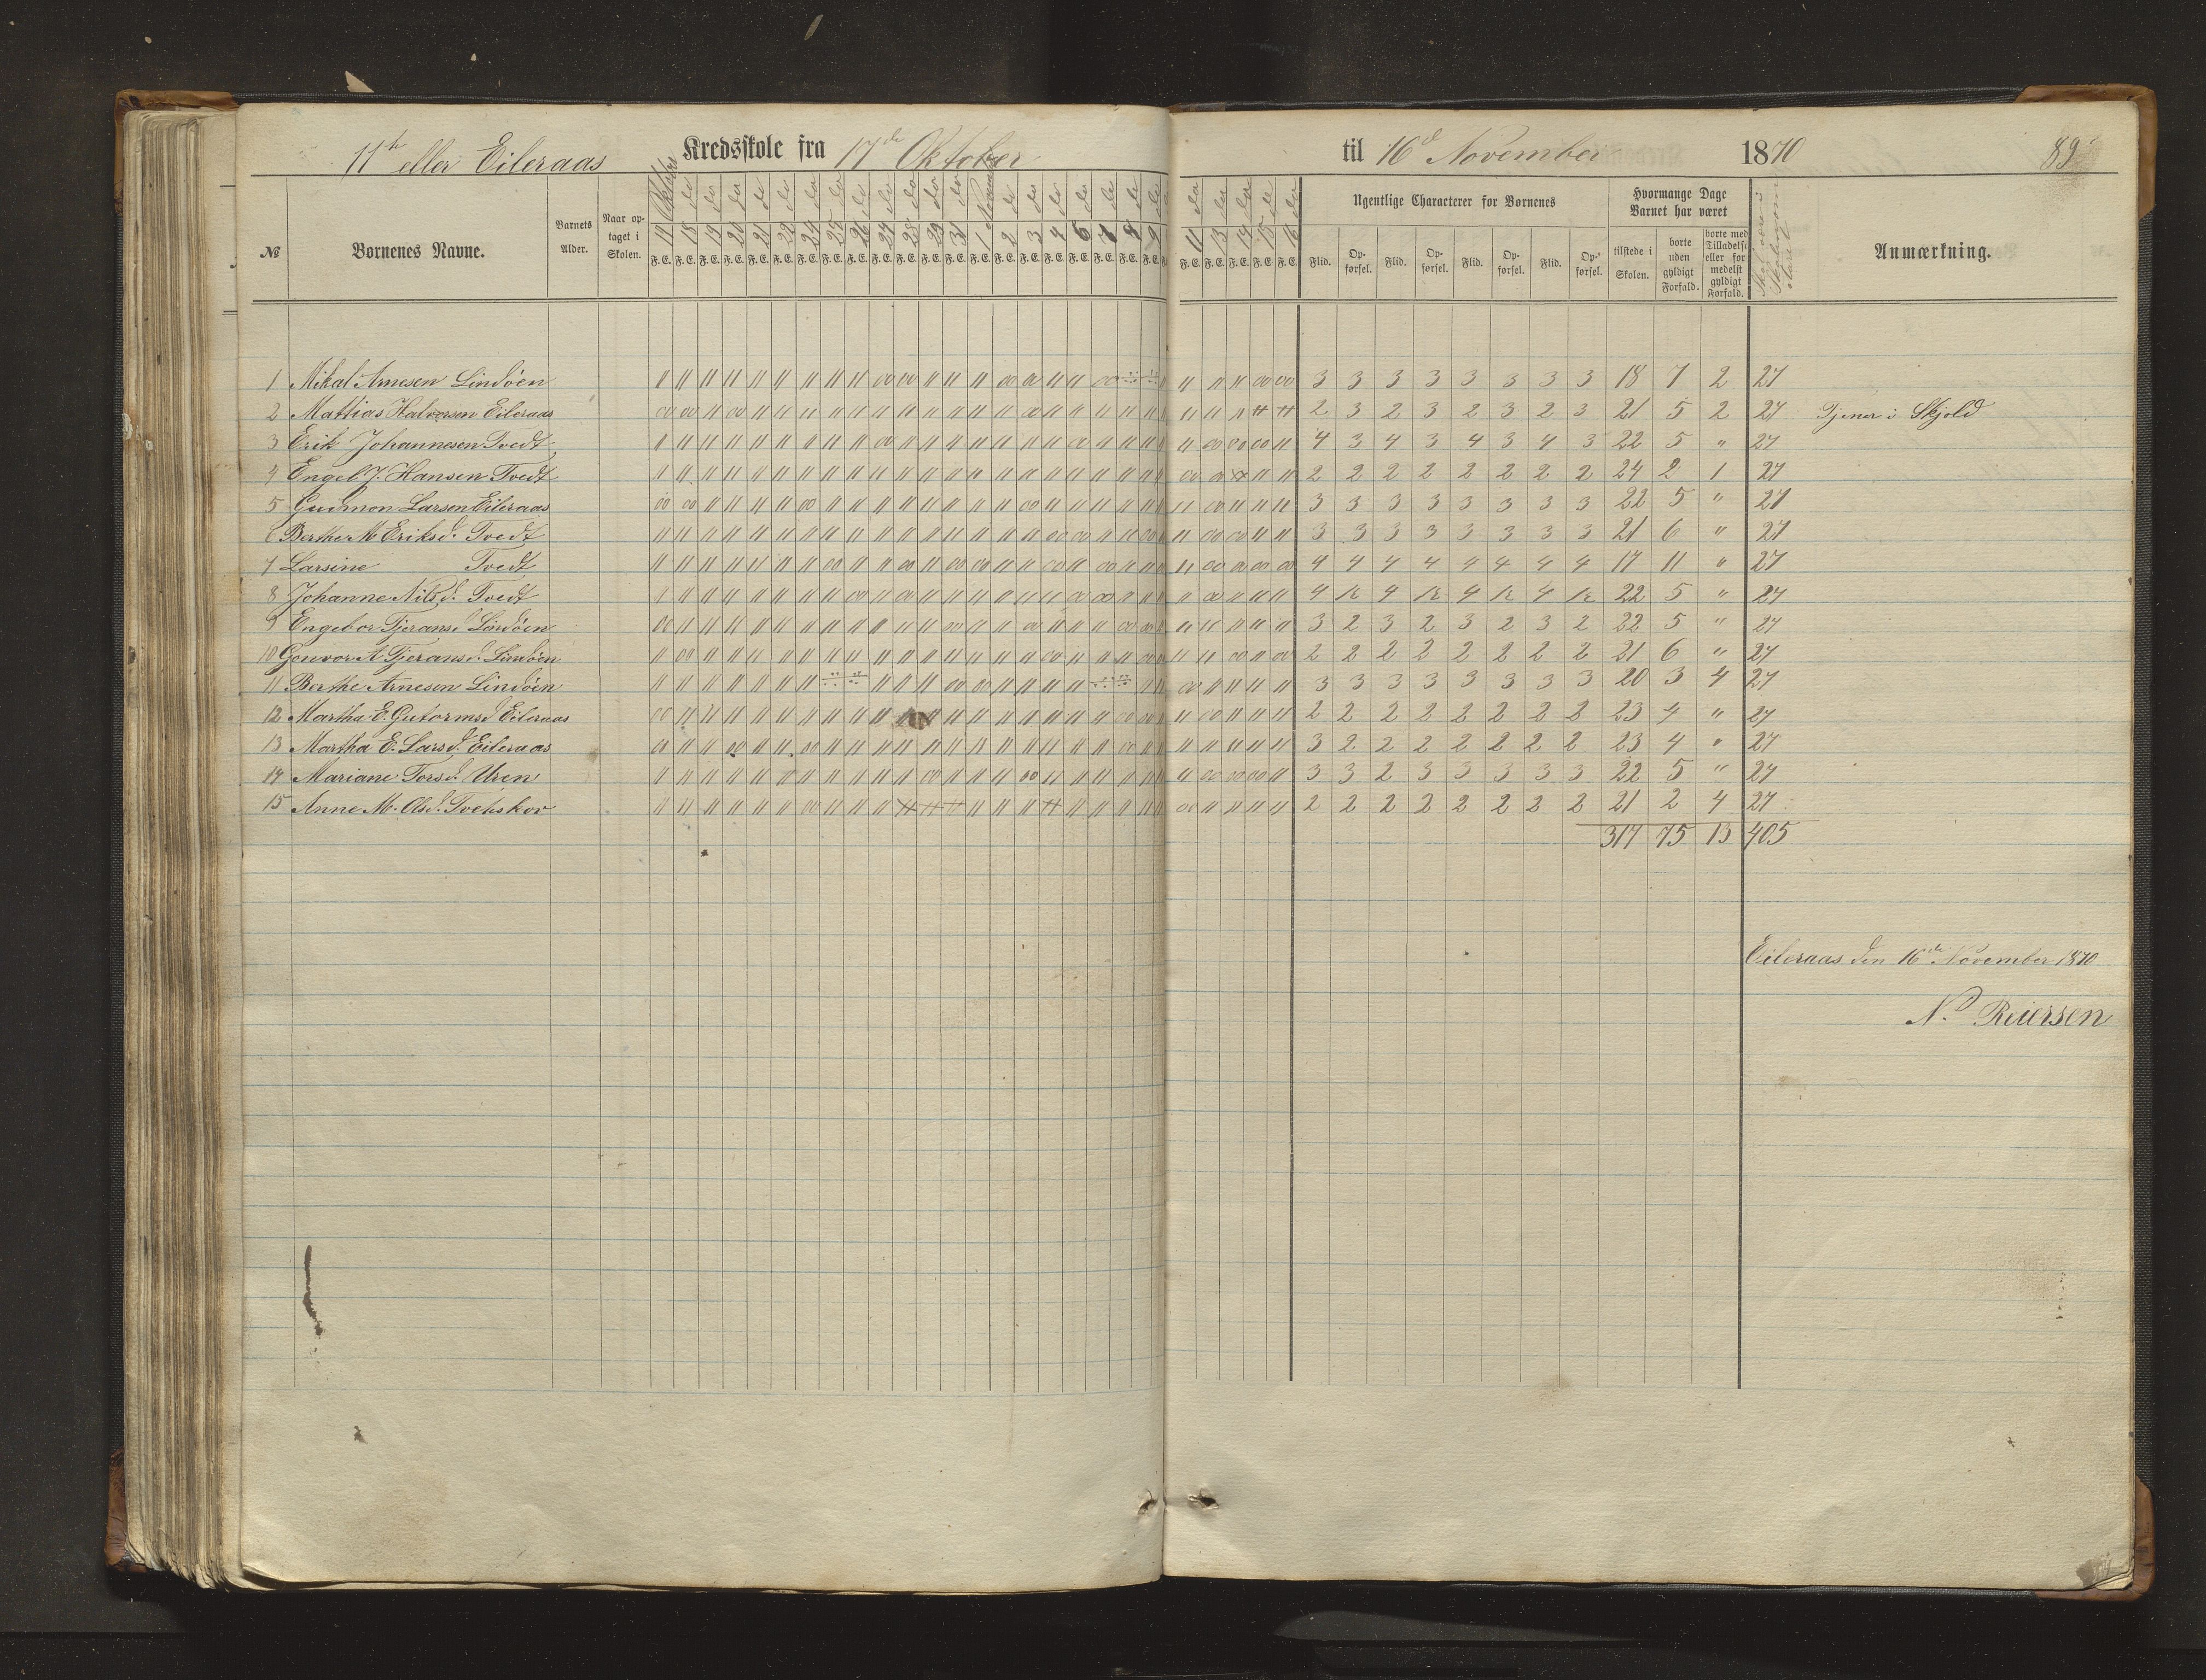 11te eller Eileraas Kredsskole fra 17de Oktober til 16d November 1870 89
№ Børnenes Navne. Barnets Alder. Naar optaget i Skolen. Ugentlige Characterer for Børnenes Hvormange Dage Barnet har været Anmærkning.
17 Oktober 18 do 19 do 20 do 21 do 22 do 24 do 25 do 26 do 27 do 28 do 29 do 31 do 1 November 2 do 3 do 4 do 5 do 7 do 8 do 9 do 11 do 13 do 14 do 15 do 16 do
F. E. F. E. F. E. F. E. F. E. F. E. F. E. F. E. F. E. F. E. F. E. F. E. F. E. F. E. F. E. F. E. F. E. F. E. F. E. F. E. F. E. F. E. F. E. F. E. F. E. F. E.
Flid. Opførsel. Flid. Opførsel. Flid. Opførsel. Flid. Opførsel. tilstede i Skolen. borte uden gyldigt Forfald. borte med Tilladelse eller formedelst gyldigt Forfald.
1 Mikal Arnesen Lindöen 3 3 3 3 3 3 3 3 18 7 2 27
2 Mattias Halvorsen Eileraas 2 3 2 3 2 3 2 3 21 5 2 27 Tjener i Skjold
3 Erik Johannesen Tvedt 4 3 4 3 4 3 4 3 22 5 " 27
4 Engel J. Hansen Tvedt 2 2 2 2 2 2 2 2 24 2 1 27
5 Gudmon Larsen Eileraas 3 3 3 3 3 3 3 3 22 5 " 27
6 Berthe M Eriksd. Tvedt 3 3 3 3 3 3 3 3 21 6 " 27
7 Larsine Tvedt 4 4 4 4 4 4 4 4 17 11 " 27
8 Johanne Nilsd. Tvedt 4 12 4 12 4 12 4 12 22 5 " 27
9 Engebor Tjeransd Lindöen 3 2 3 2 3 2 3 2 22 5 " 27
10 Gonvor A Tjeransd. Lindöen 2 2 2 2 2 2 2 2 21 6 " 27
11 Berthe Arnesen Lindöen 3 3 3 3 3 3 3 3 20 3 4 27
12 Martha E. Gutormsd Eileraas 2 2 2 2 2 2 2 2 23 4 " 27
13 Martha E. Larsd. Eileraas 3 2 2 2 2 2 2 2 23 4 " 27
14 Mariane Torsd. Uren 3 3 2 3 3 3 3 3 22 5 " 27
15 Anne M. Olsd. Tvehskov 2 2 2 2 2 2 2 2 21 2 4 27
317 75 13 405
Eileraas den 16de November 1870
N. Reiersen